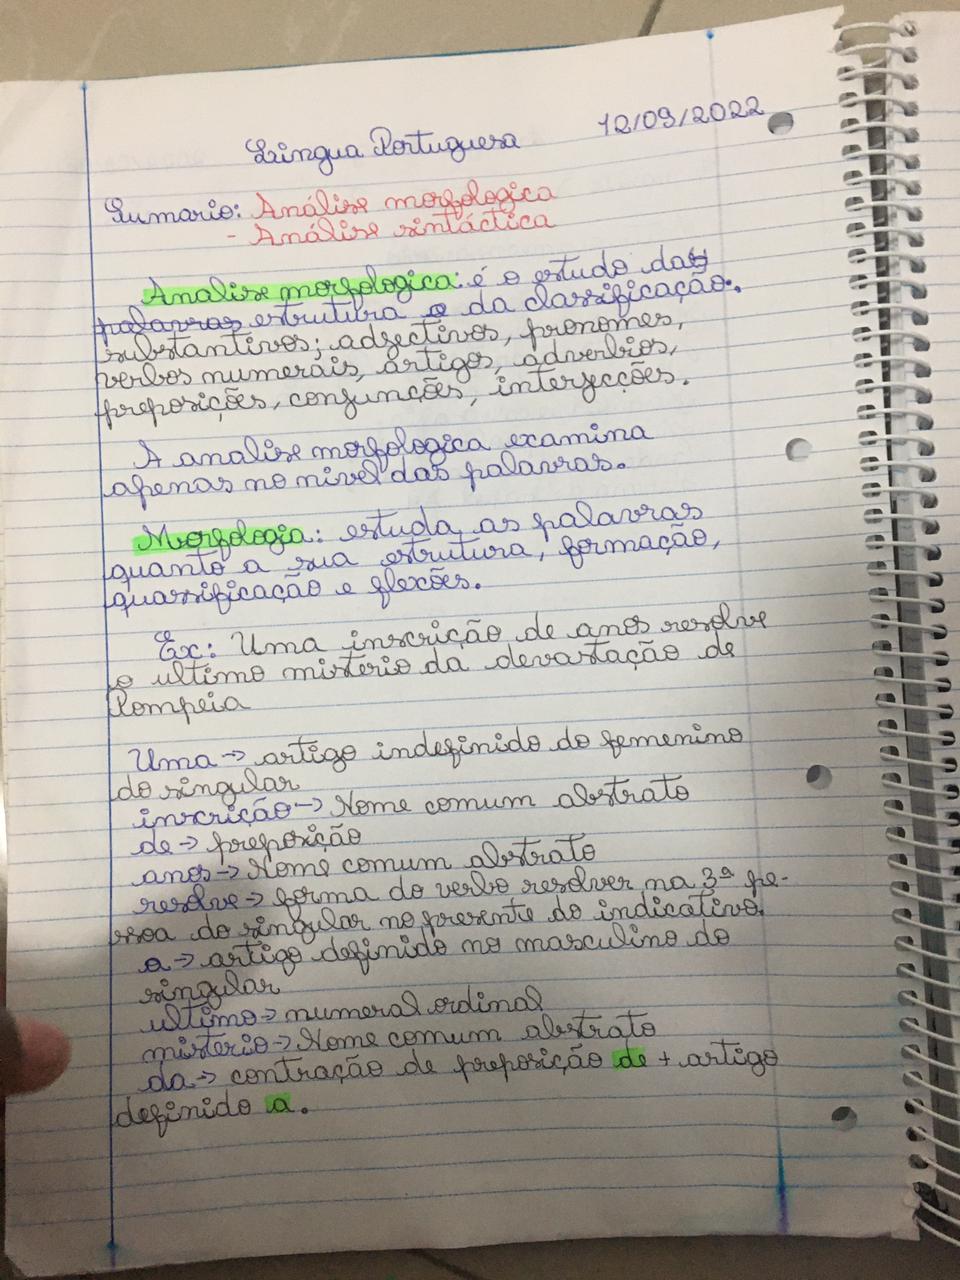 Língua Portuguesa 12/09/2022
Sumario: Análise morfologica
- Análise sintáctica
Analise morfologica: é o estudo das
palavras estrutura e da classificação.
substantivos; adjectivos, pronomes,
verbos numerais, artigos, advérbios,
preposições, conjunções, interjecções.
A analise morfologica examina
apenas no nivel das palavras.
Morfologia: estuda as palavras
quanto a sua estrutura, formação,
quassificação e flexões.
Ex: Uma inscrição de anos resolve
o ultimo mistério da devastação de
Pompeia
Uma → artigo indefinido do femenino
do singular
inscrição → Nome comum abstrato
de → preposição
anos → Nome comum abstrato
resolve → forma do verbo resolver na 3ª pe-
ssoa do singular no presente do indicativo.
o → artigo definido no masculino do
singular
ultimo → numeral ordinal
misterio → Nome comum abstrato
da → contração de preposição de + artigo
definido a.